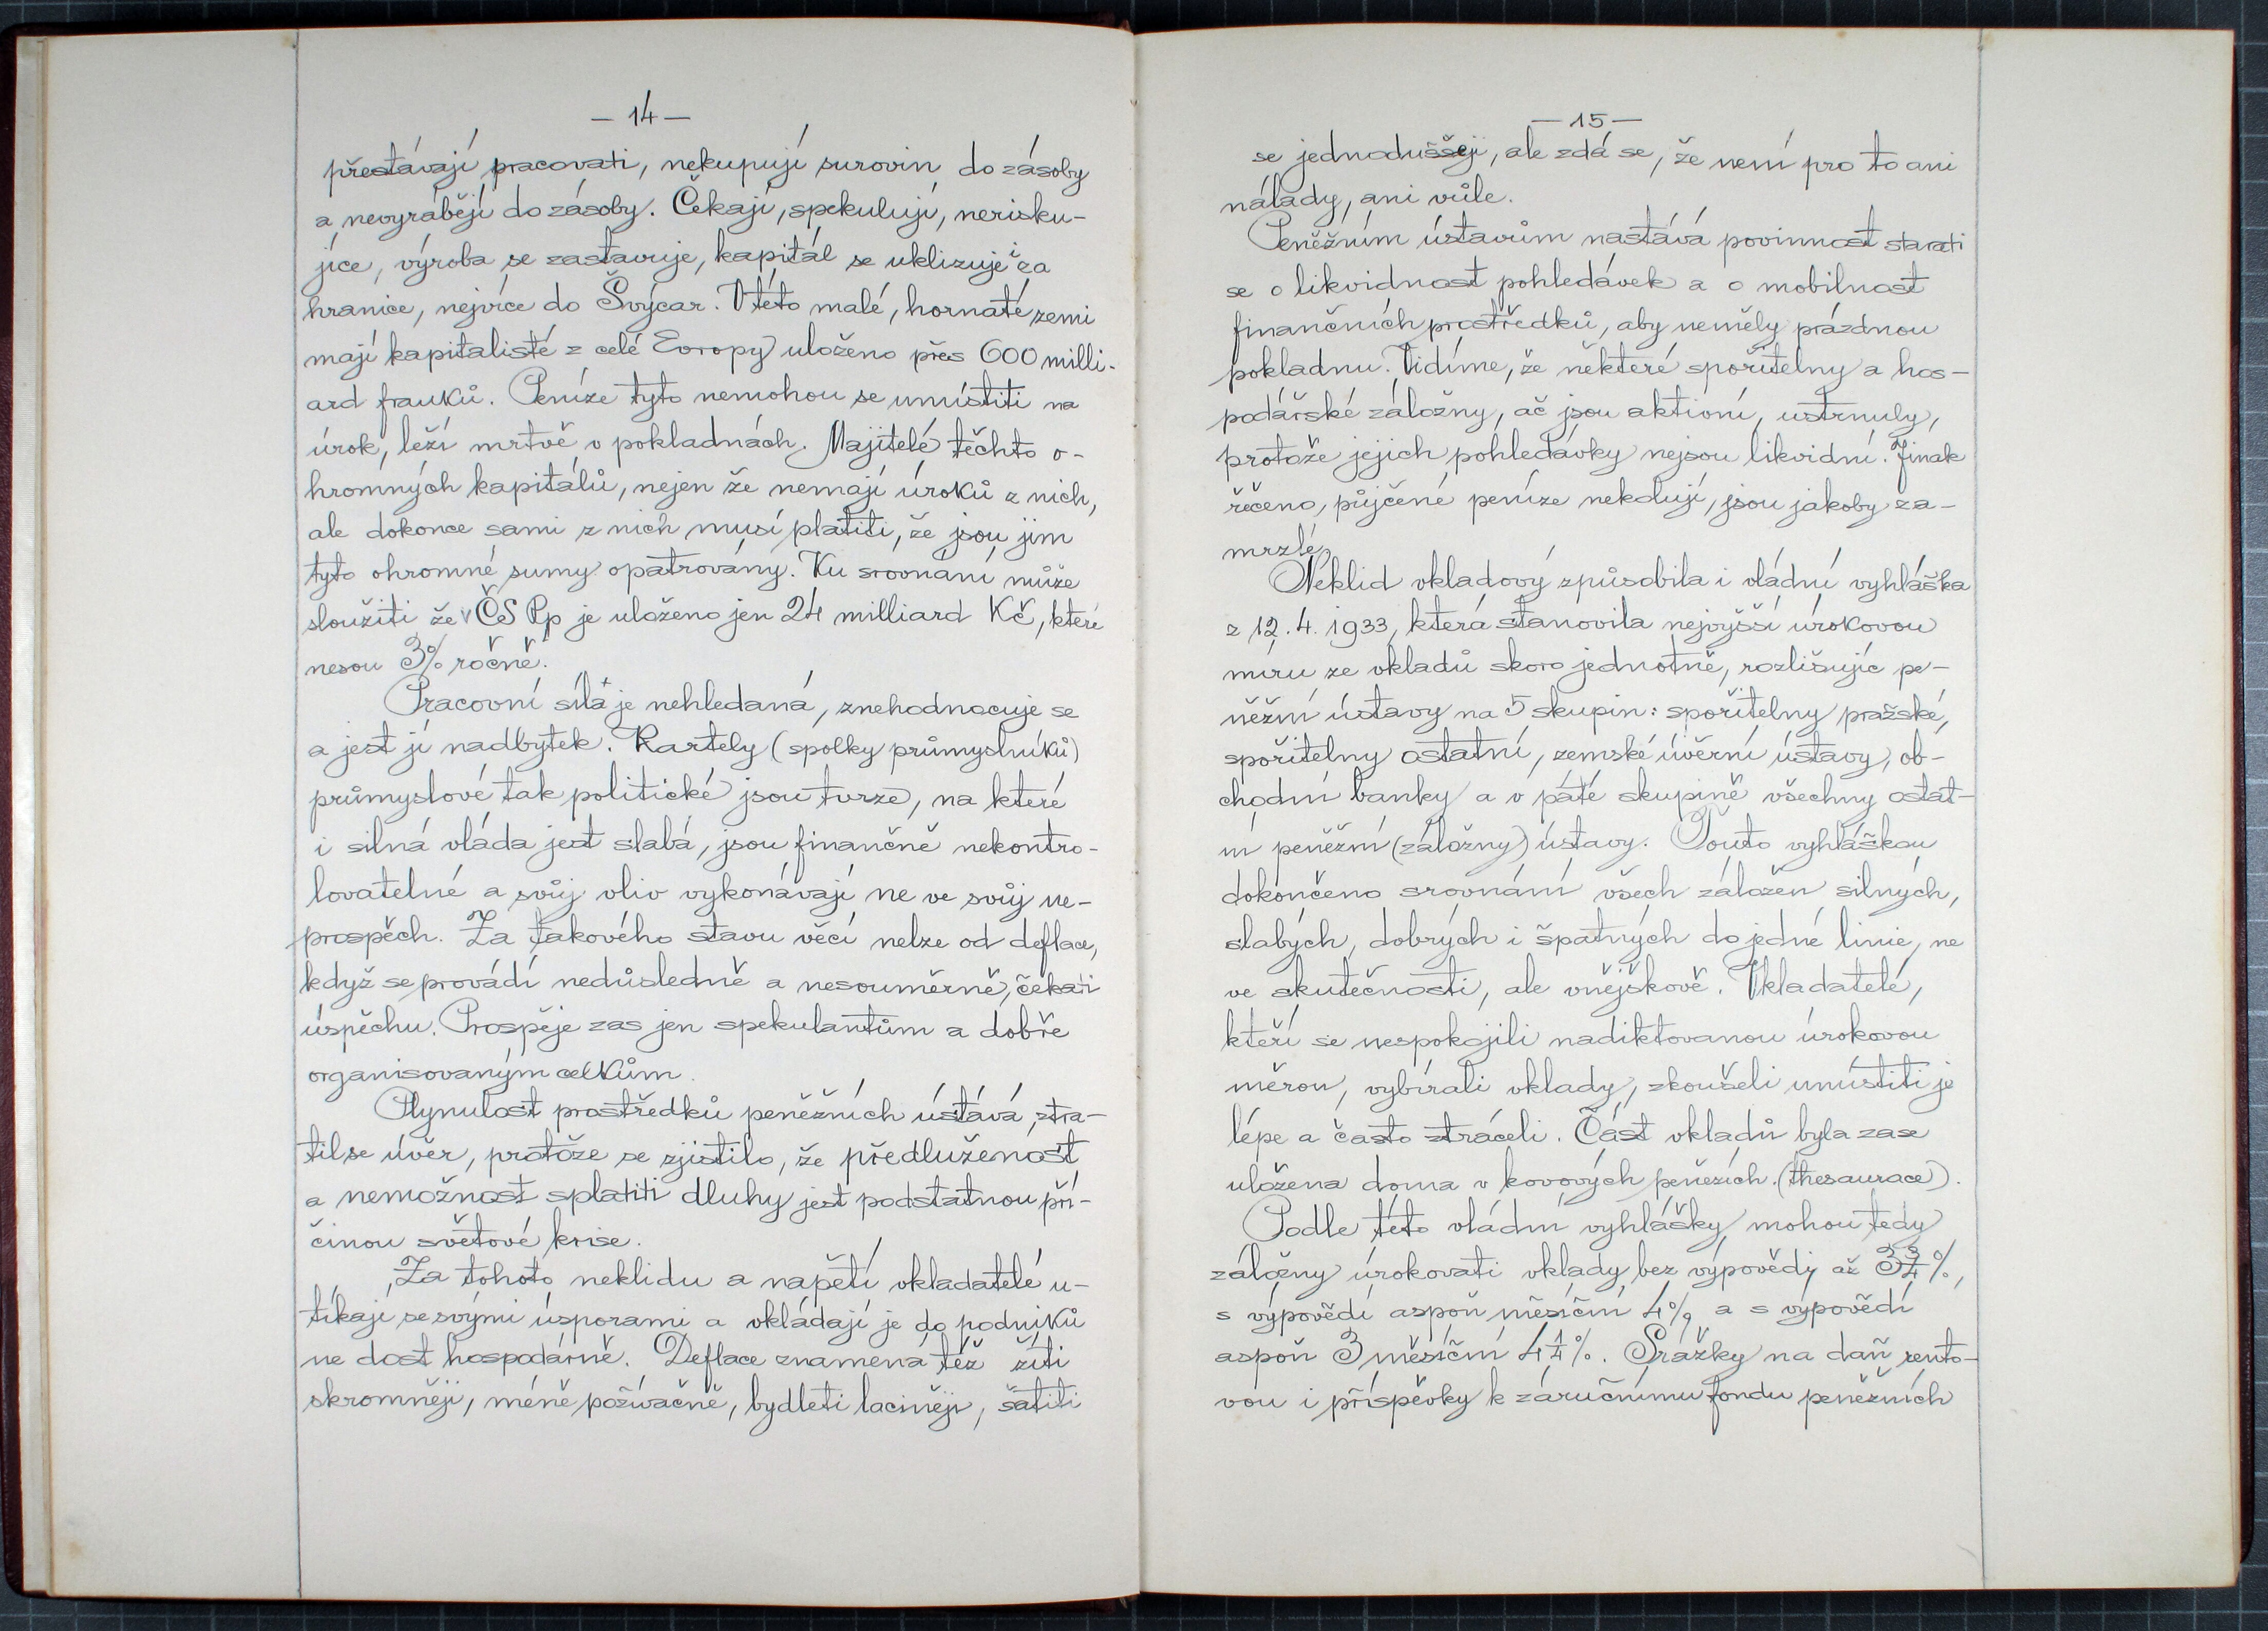 — 14 —
přestávají pracovati, nekupují surovin do zásoby
a nevyrábějí do zásoby. Čekají, spekulují, nerisku-
jíce, výroba se zastavuje, kapitál se uklizuje i za
hranice, nejvíce do Švýcar. V této malé, hornaté zemi
mají kapitalisté z celé Evropy uloženo přes 600 milli-
ard franků. Peníze tyto nemohou se umístiti na
úrok, leží mrtvě v pokladnách. Majitelé těchto o-
hromných kapitálů, nejen že nemají úroků z nich,
ale dokonce sami z nich musí platiti, že jsou jim
tyto ohromné sumy opatrovány. Ku srovnání může
sloužiti že v ČS Rp je uloženo jen 24 milliard Kč, které
nesou 3% ročně.
Pracovní síla je nehledaná, znehodnocuje se
a jest jí nadbytek. Kartely (spolky průmyslníků)
průmyslové tak politické jsou tvrze, na které
i silná vláda jest slabá, jsou finančně nekontro-
lovatelné a svůj vliv vykonávají ne ve svůj ne-
prospěch. Za takového stavu věcí nelze od deflace,
když se provádí nedůsledně a nesouměrně, čekati
úspěchu. Prospěje zas jen spekulantům a dobře
organisovaným celkům.
Plynulost prostředků peněžních ústává, ztra-
til se úvěr, protože se zjistilo, že předluženost
a nemožnost splatiti dluhy jest podstatnou pří-
činou světové krise.
Za tohoto neklidu a napětí vkladatelé u-
tíkají se svými úsporami a vkládají je do podniků
ne dost hospodárně. Deflace znamená též žíti
skromněji, méně požívačně, bydleti laciněji, šatiti
— 15 —
se jednoduššeji, ale zdá se, že není pro to ani
nálady, ani vůle.
Peněžním ústavům nastává povinnost starati
se o likvidnost pohledávek a o mobilnost
finančních prostředků, aby neměly prázdnou
pokladnu. Vidíme, že některé spořitelny a hos-
podářské záložny, ač jsou aktivní, ustrnuly,
protože jejich pohledávky nejsou likvidní. Jinak
řečeno, půjčené peníze nekolují, jsou jakoby za-
mrzlé.
Neklid vkladový způsobila i vládní vyhláška
z 12. 4. 1933, která stanovila nejvyšší úrokovou
míru ze vkladů skoro jednotně, rozlišujíc pe-
něžní ústavy na 5 skupin: spořitelny pražské,
spořitelny ostatní, zemské úvěrní ústavy, ob-
chodní banky a v páté skupině všechny ostat-
ní peněžní (záložny) ústavy. Touto vyhláškou
dokončeno srovnání všech záložen silných,
slabých, dobrých i špatných do jedné linie, ne
ve skutečnosti, ale vnějškově. Vkladatelé,
kteří se nespokojili nadiktovanou úrokovou
měrou, vybírali vklady, zkoušeli umístiti je
lépe a často ztráceli. Část vkladů byla zase
uložena doma v kovových penězích. (thesaurace).
Podle této vládní vyhlášky mohou tedy
záložny úrokovati vklady bez výpovědi až 3 3/4 %,
s výpovědí aspoň měsíční 4%, a s výpovědí
aspoň 3 měsíční 4 1/4 %. Srážky na daň rento-
vou i příspěvky k záručnímu fondu peněžních